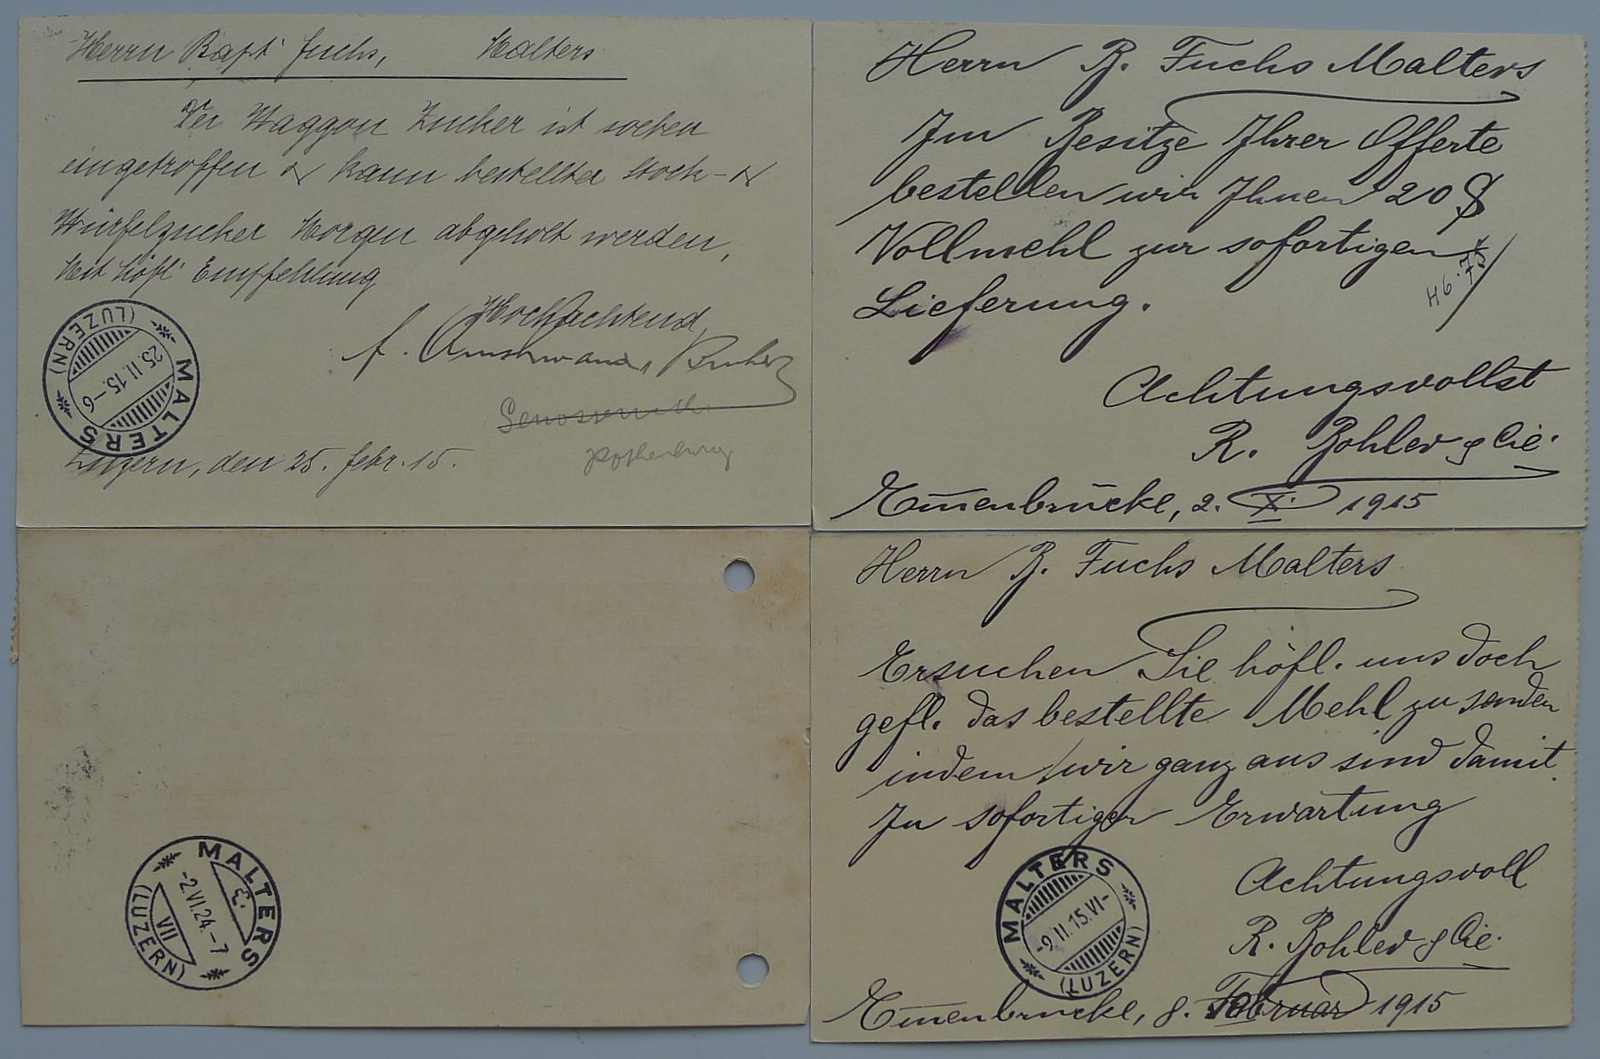 Herrn Bapt Fuchs, Malters
Der Waggon Zucker ist soeben
eingetroffen & kann bestellter Stock- &
Würfelzucker Morgen abgeholt werden,
Mit höfl Empfehlung
Hochachtend,
f.
MALTERS
(LUZERN)
25.II.15.-6
Luzern, den 25. Febr. 15.
Herrn B. Fuchs Malters
Im Besitze Ihrer Offerte
bestellen wir Ihnen 20 S
Vollmehl zur sofortigen
Lieferung.
Achtungsvollst
R. Bohler & Cie.
Em̄enbrücke, 2. X. 1915
MALTERS
-2.VI.24.-7
VII
(LUZERN)
Herrn B. Fuchs Malters
Ersuchen Sie höfl. uns doch
gefl. das bestellte Mehl zu senden
indem wir ganz aus sind damit.
In sofortiger Erwartung
Achtungsvoll
R. Bohler & Cie.
MALTERS
-9.II.15.VI-
(LUZERN)
Em̄enbrücke, 8. Februar 1915